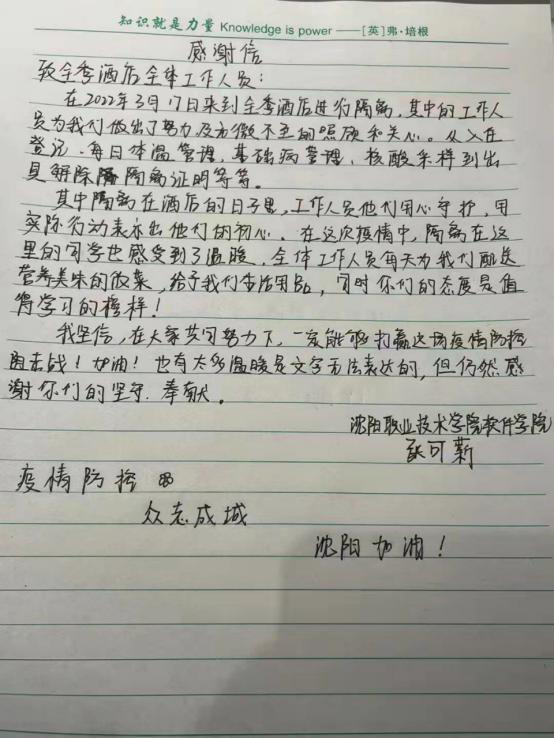 知识就是力量 Knowledge is power ——[英]弗·培根
感谢信
致全季酒店全体工作人员：
在2022年3月17日来到全季酒店进行隔离，其中的工作人
员为我们做出了努力及无微不至的照顾和关心。从入住
登记、每日体温管理、基础病管理、核酸采样到出
具解除隔离证明等等。
其中隔离在酒店的日子里，工作人员他们用心守护，用
实际行动表示出他们的初心。在这次疫情中，隔离在这
里的同学也感受到了温暖，全体工作人员每天为我们配送
营养美味的饭菜，给予我们生活用品，同时你们的态度是值
得学习的榜样！
我坚信，在大家共同努力下，一定能够打赢这场疫情防控
阻击战！加油！也有太多温暖是文字无法表达的，但仍然感
谢你们的坚守、奉献。
沈阳职业技术学院软件学院
张可新
疫情防控
众志成城
沈阳加油！